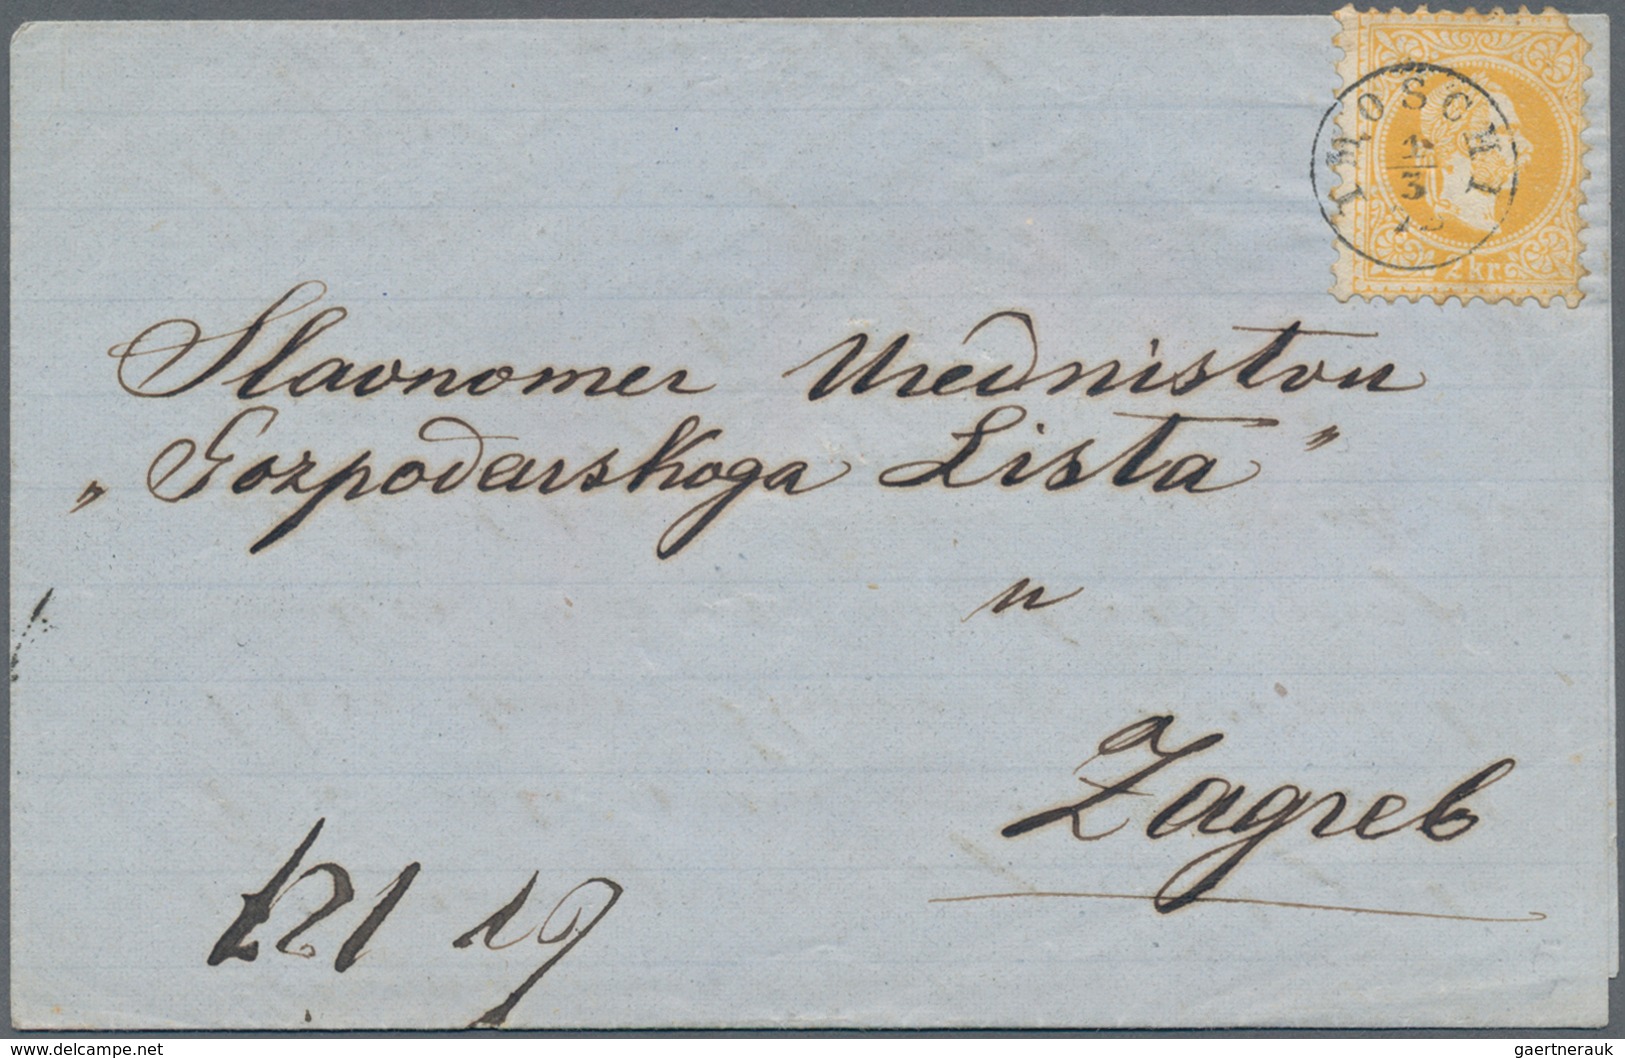 IMOSCHI
1
3
72
2 kr.
Slavnomer Uredništvu
„Gozpodarskoga Lista"
u
Zagreb
delcampe.net
gaertnerauk